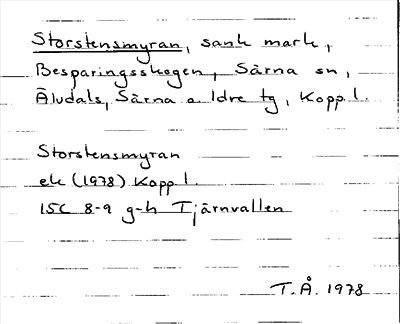 Storstensmyran, sank mark,
Besparingsskogen, Särna sn,
Älvdals, Särna o. Idre tg, Kopp. l.
Storstensmyran
ek (1978) Kopp. l.
15C 8-9 g-h Tjärnvallen
T.Å. 1978